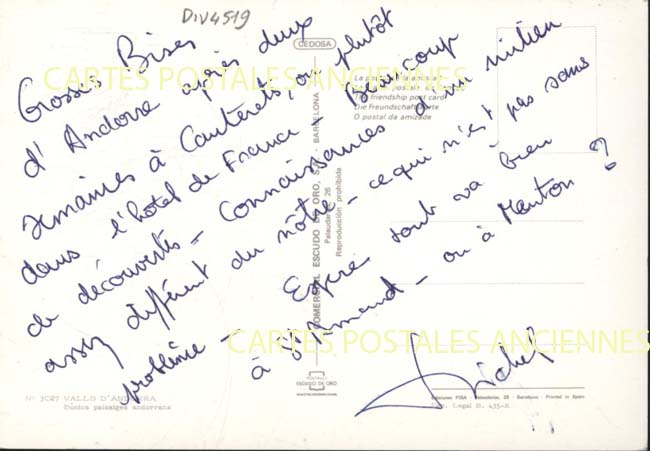 DIV4519
Grosses Bises
d'Andorre après deux
semaines à Cauterets, ou plutôt
dans l'hôtel de France - Beaucoup
de découvertes - Connaissances d'un milieu
assez différent du nôtre - ce qui n'est pas sans
problème - Espère tout va bien
à St Armand - ou à Menton ?
Michel
CEDOSA
CARTES POSTALES ANCIENNES
CARTES POSTALES ANCIENNES
friendship post card
Die Freundschaft
O postal da amizade
COMERCIAL ESCUDO DE ORO, S.A. - BARCELONA
Palaudarias, 26
Reproducción prohibida
ESCUDO DE ORO
Nº 3027 VALLS D'ANDORRA
Dúnics paisatges andorrans
Ediciones FISA - Palaudarias, 26 - Barcelona - Printed in Spain
Dep. Legal B. 435-X